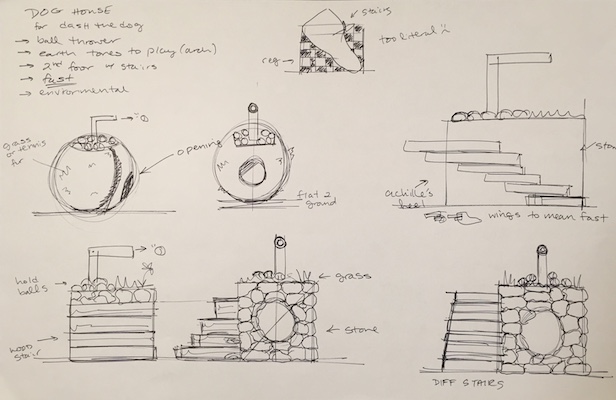 DOG HOUSE
for dash the dog
→ ball thrower
→ earth tones to play (arch)
→ 2nd foor w stairs
→ fast
→ envormental
stairs
too literal
reg
grass
or tennis
fur
opening
flat 2
ground
stone
achille's
heel
wings to mean fast
hold
balls
grass
stone
wood
stair
DIFF STAIRS